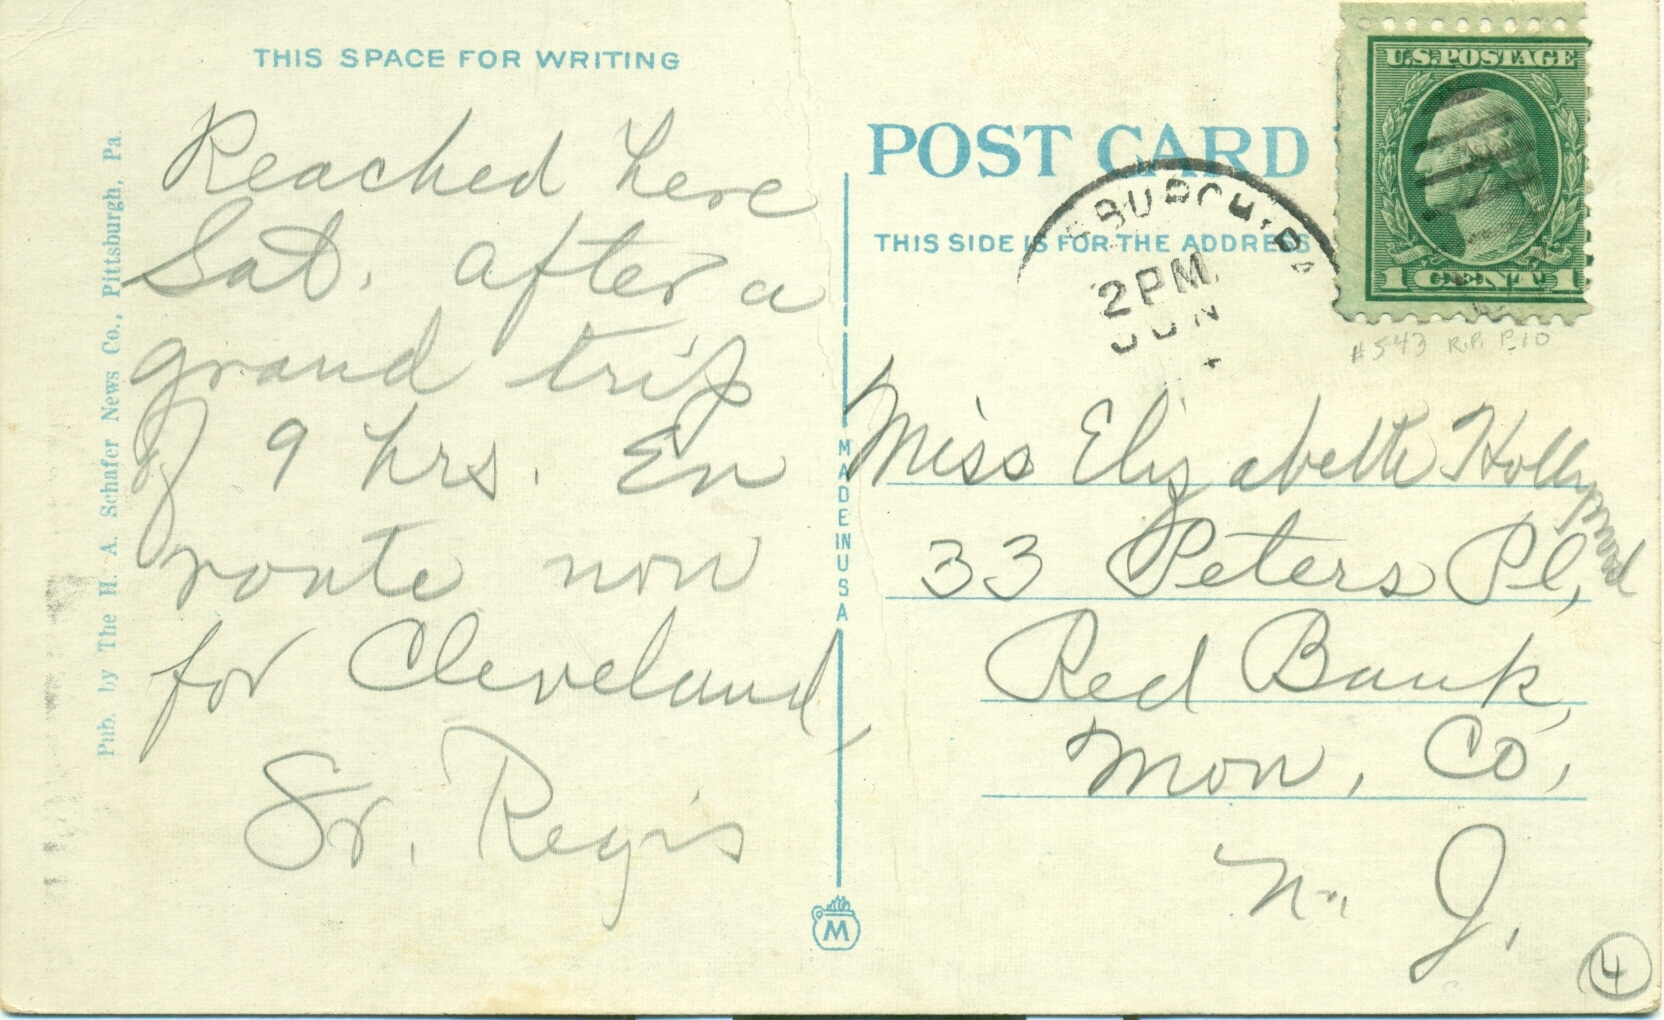 THIS SPACE FOR WRITING
Reached here
Sat. after a
grand trip
of 9 hrs. En
route now
for Cleveland,
Sr. Regis
Pub. by The H. A. Schafer News Co., Pittsburgh, Pa.
MADE IN USA
M
POST CARD
THIS SIDE IS FOR THE ADDRESS
2 PM
JUN
U.S. POSTAGE
1 CENT 1
#543 R.P. P.10
Miss Elizabeth Hollywood
33 Peters Pl,
Red Bank,
Mon. Co,
N. J.
4